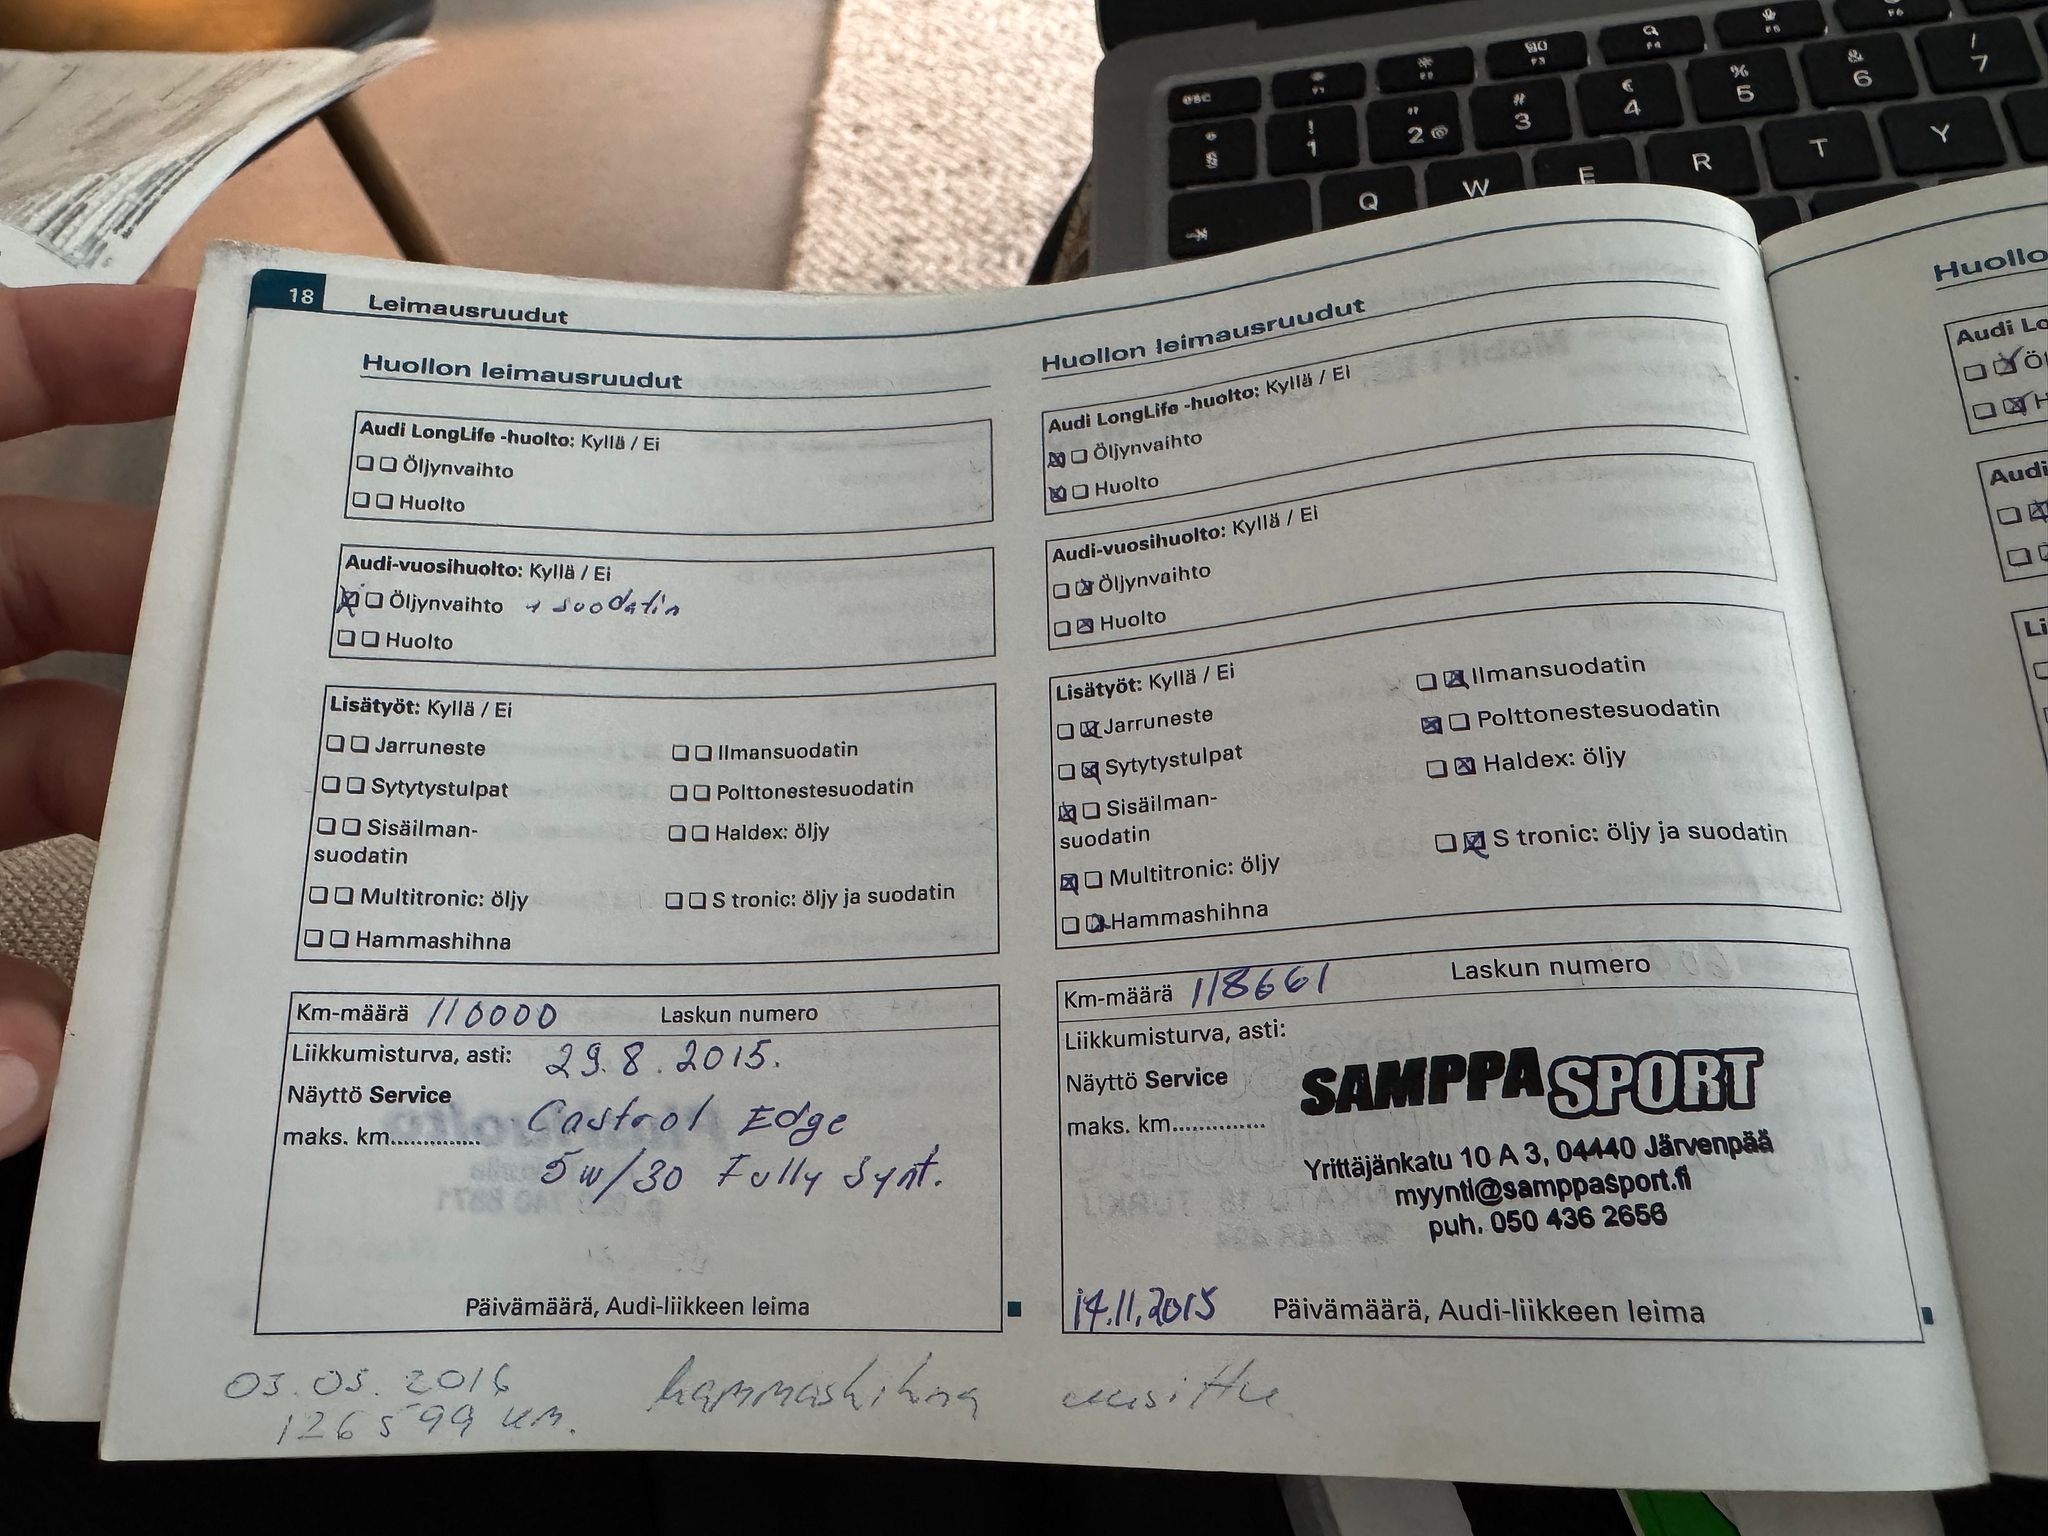 18 Leimausruudut
Huollon leimausruudut
Audi LongLife -huolto: Kyllä / Ei
Öljynvaihto
Huolto
Audi-vuosihuolto: Kyllä / Ei
Öljynvaihto + suodatin
Huolto
Lisätyöt: Kyllä / Ei
Jarruneste Ilmansuodatin
Sytytystulpat Polttonestesuodatin
Sisäilman- Haldex: öljy
suodatin
Multitronic: öljy S tronic: öljy ja suodatin
Hammashihna
Km-määrä 110000 Laskun numero
Liikkumisturva, asti: 29.8.2015.
Näyttö Service
Castrol Edge
maks. km..............
5w/30 Fully Synt.
Päivämäärä, Audi-liikkeen leima
Huollon leimausruudut
Audi LongLife -huolto: Kyllä / Ei
Öljynvaihto
Huolto
Audi-vuosihuolto: Kyllä / Ei
Öljynvaihto
Huolto
Lisätyöt: Kyllä / Ei
Jarruneste Ilmansuodatin
Sytytystulpat Polttonestesuodatin
Sisäilman- Haldex: öljy
suodatin
Multitronic: öljy S tronic: öljy ja suodatin
Hammashihna
Km-määrä 118661 Laskun numero
Liikkumisturva, asti:
Näyttö Service
maks. km..............
SAMPPA SPORT
Yrittäjänkatu 10 A 3, 04440 Järvenpää
myynti@samppasport.fi
puh. 050 436 2656
14.11.2015 Päivämäärä, Audi-liikkeen leima
03.03.2016 hammashihna uusittu
126599 km.
Huollo
Audi Lo
Öl
H
Audi
Li
esc F1 F2 F3 F4 F5 F6
§ ° 1 ! 2 " @ 3 # 4 € 5 % 6 & 7 /
Q W E R T Y